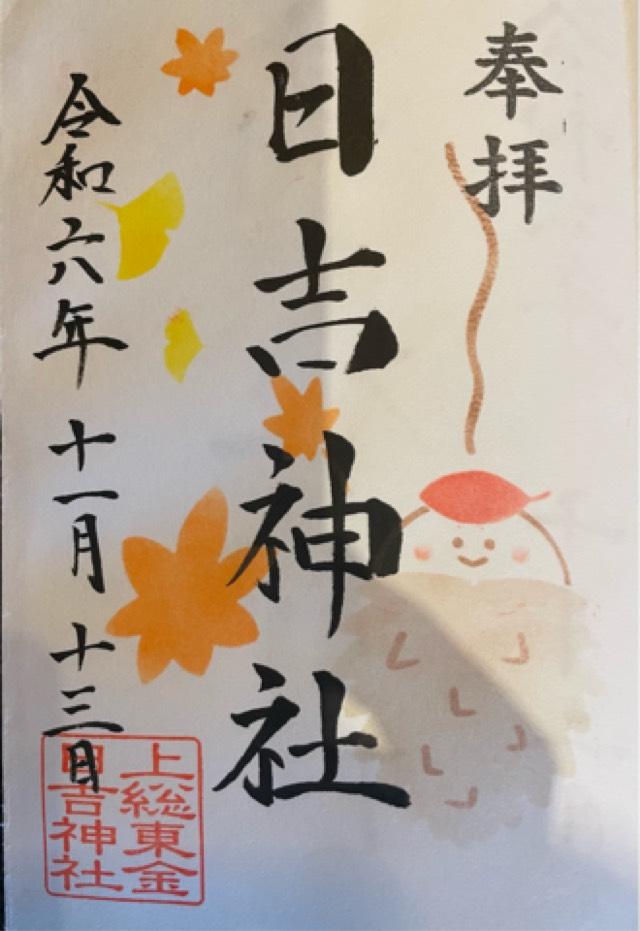 奉拝
日吉神社
令和六年 十一月 十三日
上総東金
日吉神社